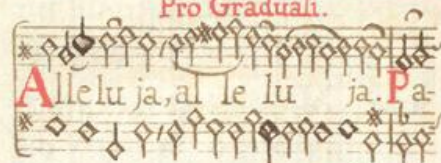 Pro Graduali.
Alleluja, al le lu ja. Pa-